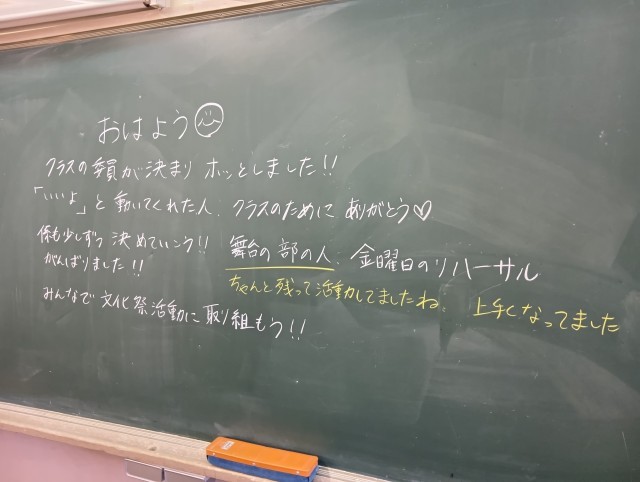 おはよう
クラスの委員が決まり ホッとしました!!
「いいよ」と 動いてくれた人、クラスのために ありがとう♡
係も少しずつ 決めていこう!!
がんばりました!!
舞台の部の人、金曜日のリハーサル
ちゃんと残って活動してましたね。 上手くなってました
みんなで 文化祭活動に 取り組もう!!